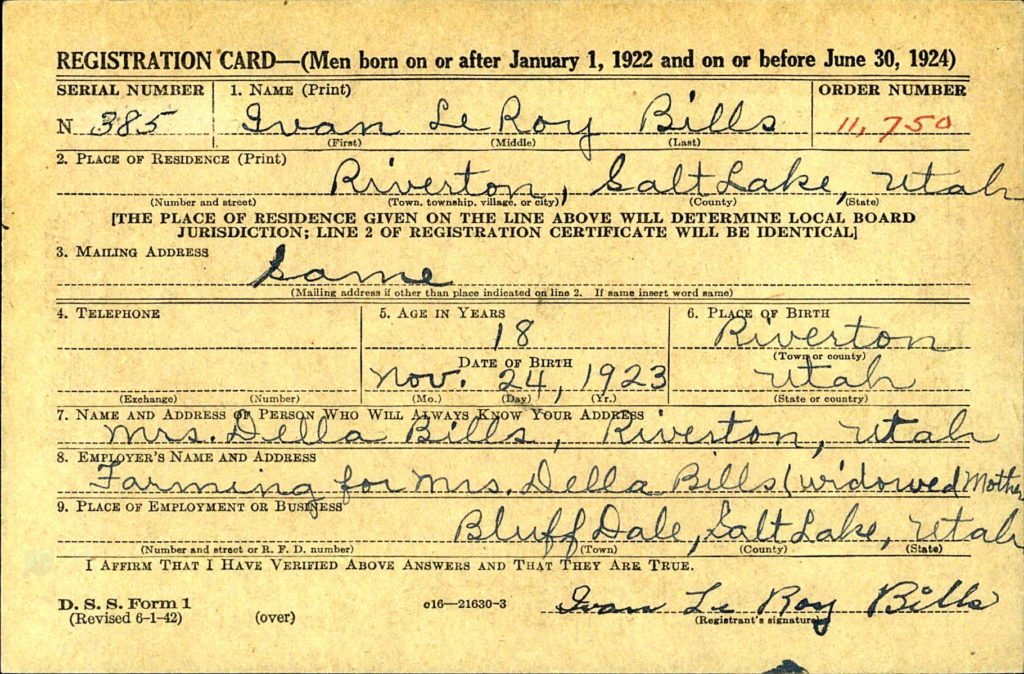 REGISTRATION CARD—(Men born on or after January 1, 1922 and on or before June 30, 1924)
SERIAL NUMBER 1. NAME (Print) ORDER NUMBER
N 385 Ivan Le Roy Bills 11,750
(First) (Middle) (Last)
2. PLACE OF RESIDENCE (Print)
Riverton, Salt Lake, Utah
(Number and street) (Town, township, village, or city) (County) (State)
[THE PLACE OF RESIDENCE GIVEN ON THE LINE ABOVE WILL DETERMINE LOCAL BOARD
JURISDICTION; LINE 2 OF REGISTRATION CERTIFICATE WILL BE IDENTICAL]
3. MAILING ADDRESS
Same
(Mailing address if other than place indicated on line 2. If same insert word same)
4. TELEPHONE 5. AGE IN YEARS 6. PLACE OF BIRTH
18 Riverton
DATE OF BIRTH (Town or county)
Nov. 24, 1923 Utah
(Exchange) (Number) (Mo.) (Day) (Yr.) (State or country)
7. NAME AND ADDRESS OF PERSON WHO WILL ALWAYS KNOW YOUR ADDRESS
Mrs. Della Bills, Riverton, Utah
8. EMPLOYER'S NAME AND ADDRESS
Farming for Mrs. Della Bills (widowed Mother
9. PLACE OF EMPLOYMENT OR BUSINESS
Bluff Dale, Salt Lake, Utah
(Number and street or R. F. D. number) (Town) (County) (State)
I AFFIRM THAT I HAVE VERIFIED ABOVE ANSWERS AND THAT THEY ARE TRUE.
D. S. S. Form 1 c16—21630-3 Ivan Le Roy Bills
(Revised 6-1-42) (over) (Registrant's signature)